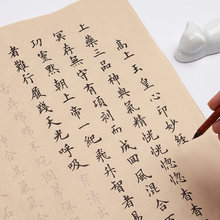 高上玉皇心印妙經
上藥三品神與氣精恍恍惚惚杳杳
冥存無守有頃刻而成回風混合
功靈默朝上帝一紀飛昇智者易
者難行履踐天光呼吸